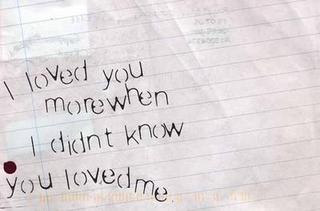 I loved you
morewhen
I didnt know
you lovedme